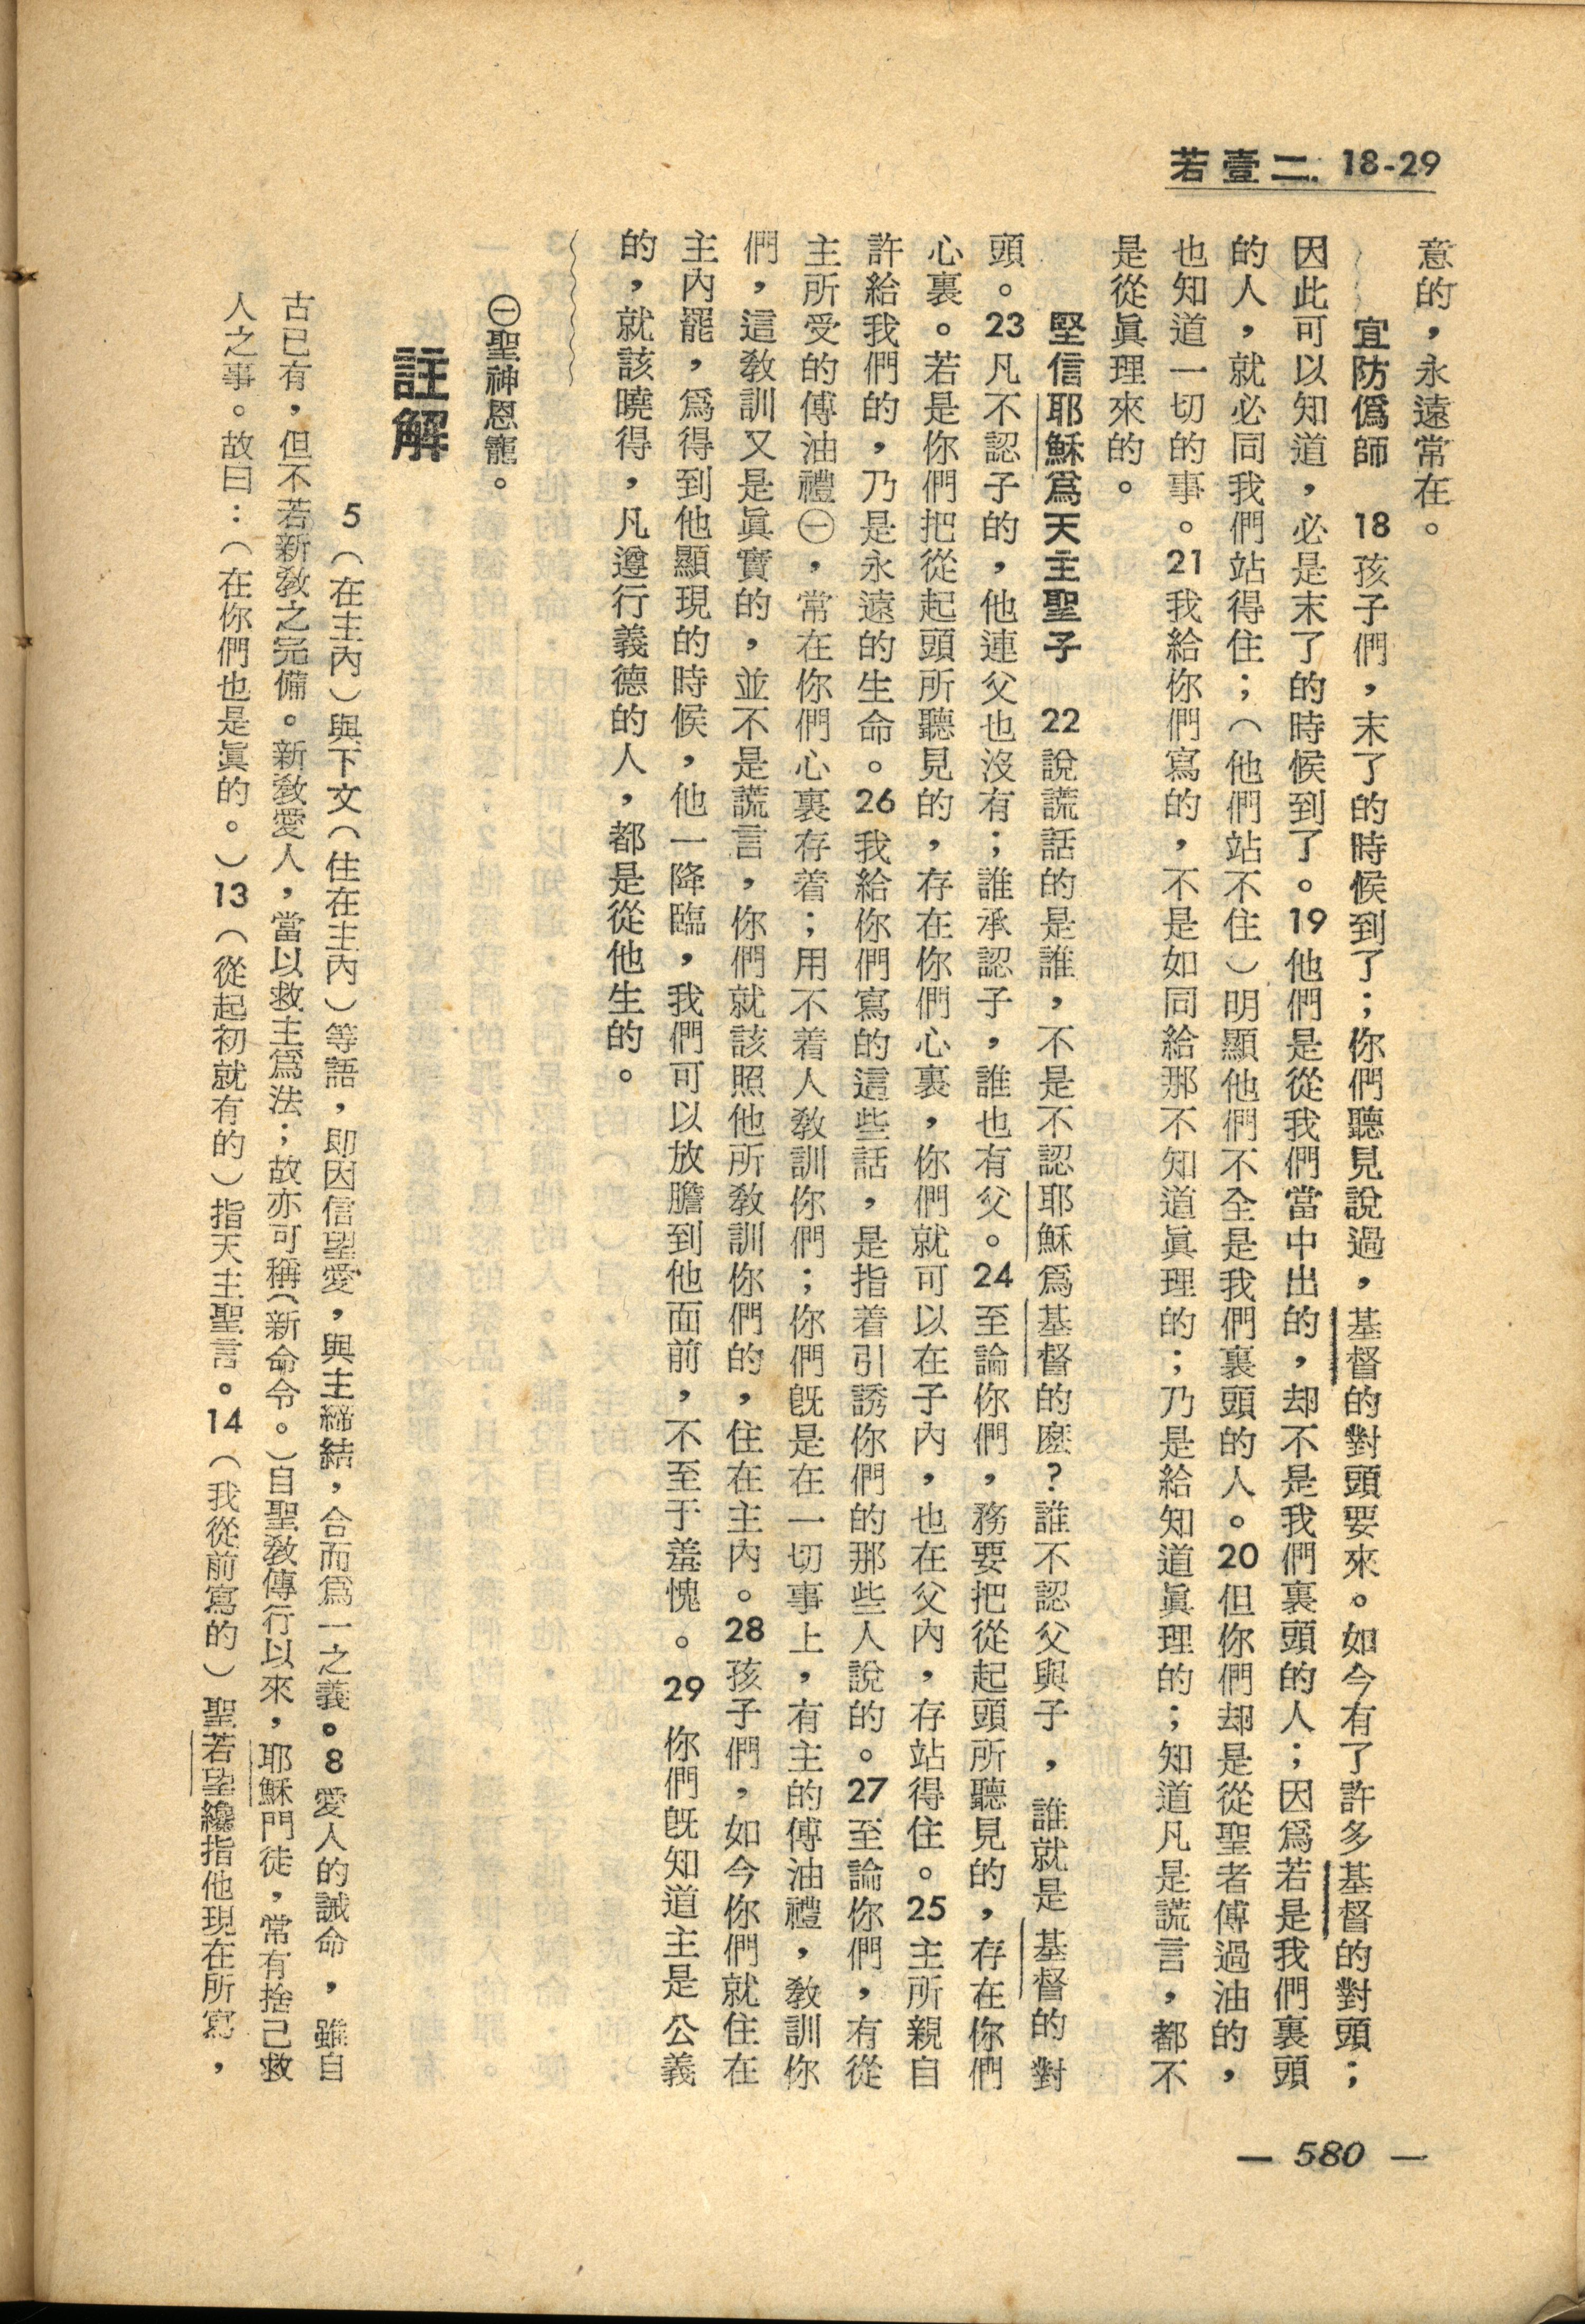 若壹二. 18-29
意的，永遠常在。
宜防僞師 18孩子們，末了的時候到了；你們聽見說過，基督的對頭要來。如今有了許多基督的對頭；
因此可以知道，必是末了的時候到了。19他們是從我們當中出的，却不是我們裏頭的人；因爲若是我們裏頭
的人，就必同我們站得住；（他們站不住）明顯他們不全是我們裏頭的人。20但你們却是從聖者傅過油的，
也知道一切的事。21我給你們寫的，不是如同給那不知道眞理的；乃是給知道眞理的；知道凡是謊言，都不
是從眞理來的。
堅信耶穌爲天主聖子 22說謊話的是誰，不是不認耶穌爲基督的麽？誰不認父與子，誰就是基督的對
頭。23凡不認子的，他連父也沒有；誰承認子，誰也有父。24至論你們，務要把從起頭所聽見的，存在你們
心裏。若是你們把從起頭所聽見的，存在你們心裏，你們就可以在子內，也在父內，存站得住。25主所親自
許給我們的，乃是永遠的生命。26我給你們寫的這些話，是指着引誘你們的那些人說的。27至論你們，有從
主所受的傅油禮㊀，常在你們心裏存着；用不着人敎訓你們；你們旣是在一切事上，有主的傅油禮，敎訓你
們，這敎訓又是眞實的，並不是謊言，你們就該照他所敎訓你們的，住在主內。28孩子們，如今你們就住在
主內罷，爲得到他顯現的時候，他一降臨，我們可以放膽到他面前，不至于羞愧。29你們旣知道主是公義
的，就該曉得，凡遵行義德的人，都是從他生的。
㊀聖神恩寵。
註解
5（在主內）與下文（住在主內）等語，即因信望愛，與主締結，合而爲一之義。8愛人的誡命，雖自
古已有，但不若新敎之完備。新敎愛人，當以救主爲法；故亦可稱（新命令。）自聖敎傳行以來，耶穌門徒，常有捨己救
人之事。故曰：（在你們也是眞的。）13（從起初就有的）指天主聖言。14（我從前寫的）聖若望纔指他現在所寫，
— 580 —